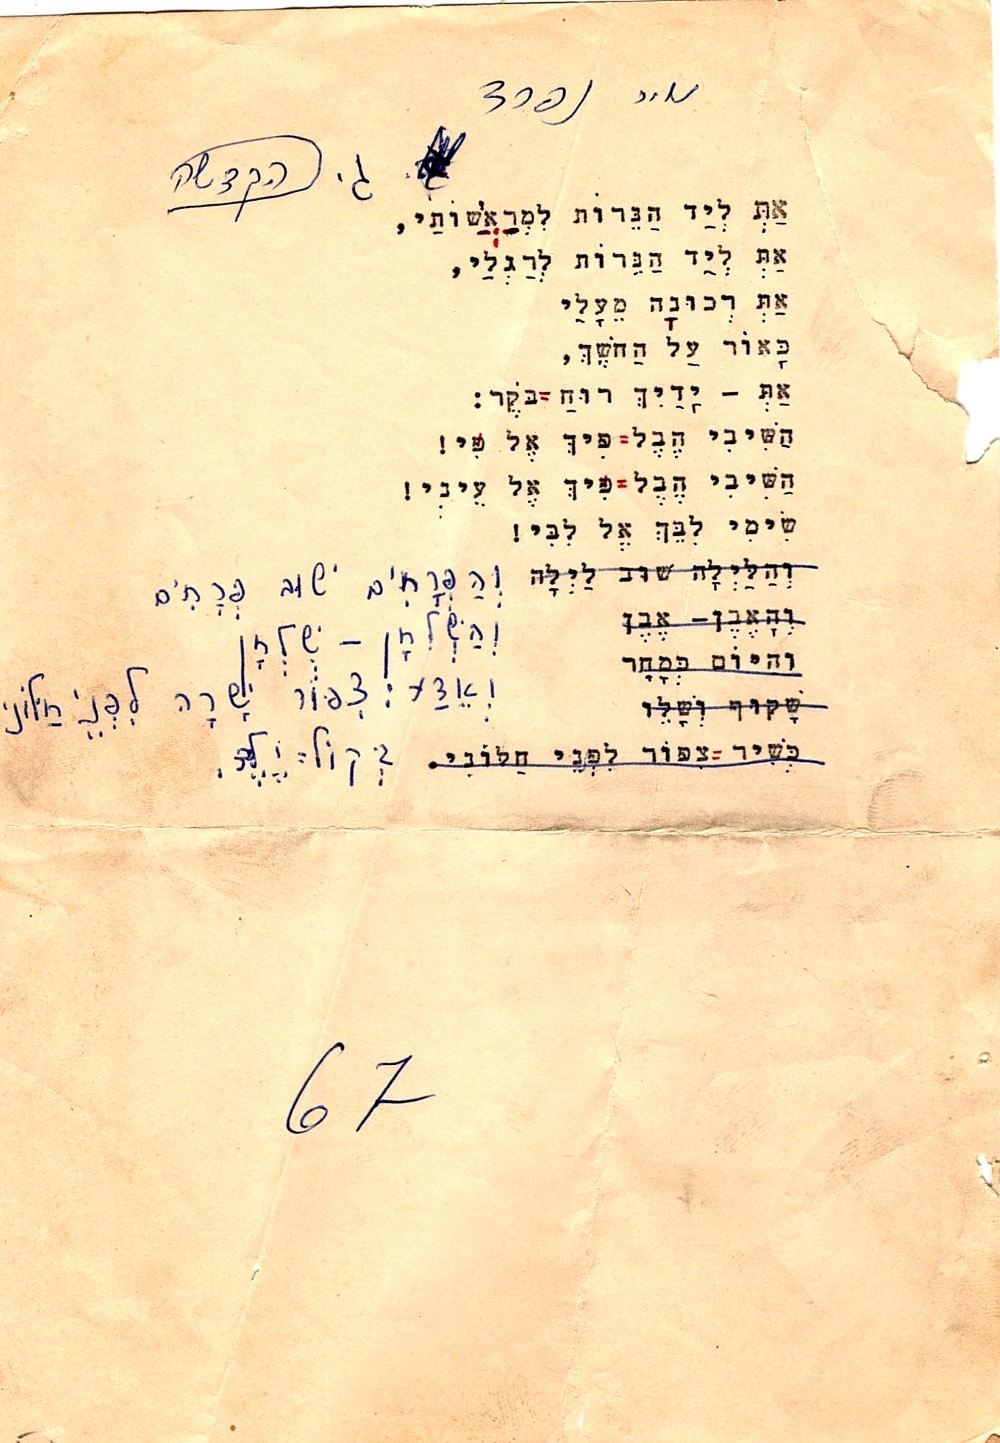 שיר נפרד
ג. הקדשה
אַתְּ לְיַד הַנֵּרוֹת לִמְרַאֲשׁוֹתַי,
אַתְּ לְיַד הַנֵּרוֹת לְרַגְלַי,
אַתְּ רְכוּנָה מֵעָלַי
כָּאוֹר עַל הַחֹשֶׁךְ,
אַתְּ – יָדַיִךְ רוּחַ=בֹּקֶר:
הַשִּׁיבִי הֶבֶל=פִּיךְ אֶל פִּי!
הַשִּׁיבִי הֶבֶל=פִּיךְ אֶל עֵינִי!
שִׂימִי לִבֵּךְ אֶל לִבִּי!
וְהַלַּיְלָה שׁוּב לַיְלָה וְהַפְּרָחִים שׁוּב פְּרָחִים
וְהָאֶבֶן– אֶבֶן וְהַשֻּׁלְחָן – שֻׁלְחָן
וְהַיּוֹם כְּמָחָר וְאֵדַע: צִפּוֹר שָׁרָה לִפְנֵי חַלּוֹנִי
שָׁקוּף וְשָׁלֵו
כְּשִׁיר=צִפּוֹר לִפְנֵי חַלּוֹנִי. בְּקוֹל=יֶלֶד.
67